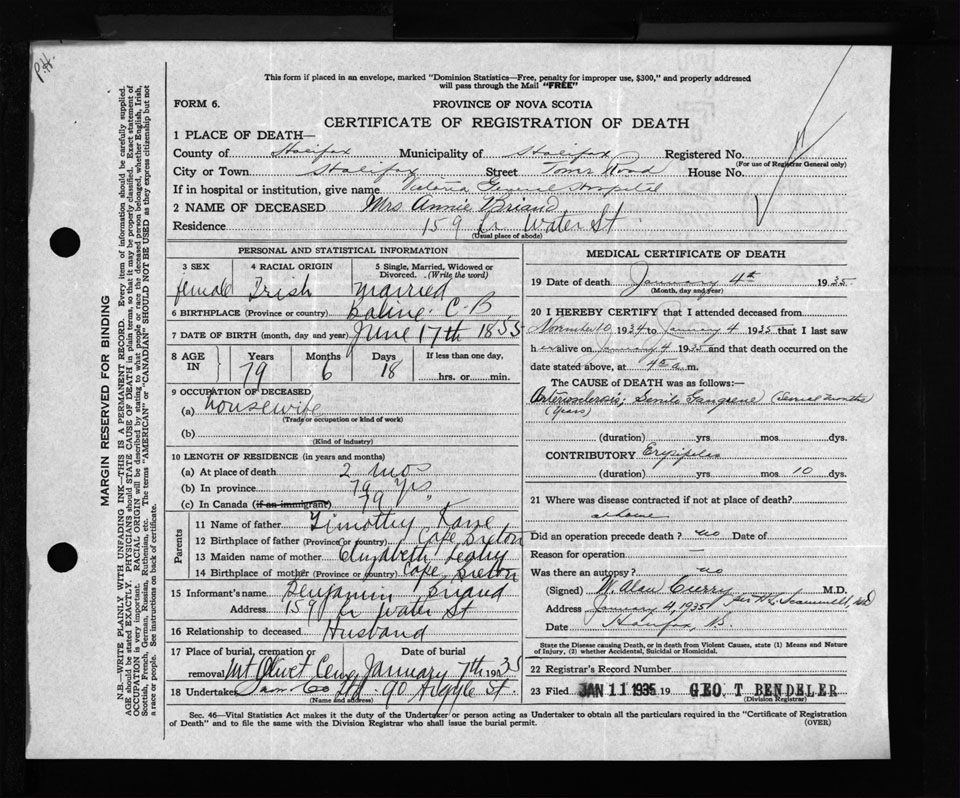 P.H.
This form if placed in an envelope, marked "Dominion Statistics—Free, penalty for improper use, $300," and properly addressed
will pass through the Mail "FREE"
FORM 6.
PROVINCE OF NOVA SCOTIA
CERTIFICATE OF REGISTRATION OF DEATH
1 PLACE OF DEATH—
County of Halifax Municipality of Halifax Registered No.
(For use of Registrar General only)
City or Town Halifax Street Tower Road House No.
If in hospital or institution, give name Victoria General Hospital
2 NAME OF DECEASED Mrs Annie Briand
Residence 159 Lr Water St
(Usual place of abode)
PERSONAL AND STATISTICAL INFORMATION
3 SEX 4 RACIAL ORIGIN 5 Single, Married, Widowed or Divorced. (Write the word)
female Irish married
6 BIRTHPLACE (Province or country) C.B
7 DATE OF BIRTH (month, day and year) June 17th 1855
8 AGE IN Years Months Days If less than one day,
79 6 18 hrs. or min.
9 OCCUPATION OF DECEASED
(a) housewife
(Trade or occupation or kind of work)
(b)
(Kind of industry)
10 LENGTH OF RESIDENCE (in years and months)
(a) At place of death 2 mos
(b) In province 79 yrs
(c) In Canada (if an immigrant) 79 "
Parents
11 Name of father Timothy
12 Birthplace of father (Province or country) Cape Breton
13 Maiden name of mother Elizabeth Leahy
14 Birthplace of mother (Province or country) Cape Breton
15 Informant's name Benjamin Briand
Address 159 Lr Water St
16 Relationship to deceased Husband
17 Place of burial, cremation or removal Date of burial
Mt Olivet Cem January 7th 1935
18 Undertaker Co Ltd. 90 Argyle St.
(Name and address)
MEDICAL CERTIFICATE OF DEATH
19 Date of death January 4th 1935
(Month, day and year)
20 I HEREBY CERTIFY that I attended deceased from
November 10 1934 to January 4 1935 that I last saw
her alive on January 4 1935 and that death occurred on the
date stated above, at a m.
The CAUSE OF DEATH was as follows:—
Arteriosclerosis; Senile Gangrene (Several months)
(years)
(duration) yrs. mos. dys.
CONTRIBUTORY Erysipelas
(duration) yrs. mos. 10 dys.
21 Where was disease contracted if not at place of death?
at home
Did an operation precede death? no Date of
Reason for operation —
Was there an autopsy? no
(Signed) W. Alan Curry M.D.
per
Address January 4, 1935
Date Halifax, N.S.
State the Disease causing Death, or in death from Violent Causes, state (1) Means and Nature
of Injury, (2) whether Accidental, Suicidal or Homicidal.
22 Registrar's Record Number
23 Filed JAN 11 1935 19 GEO. T BENDELER
(Division Registrar)
Sec. 46—Vital Statistics Act makes it the duty of the Undertaker or person acting as Undertaker to obtain all the particulars required in the "Certificate of Registration
of Death" and to file the same with the Division Registrar who shall issue the burial permit.
(OVER)
MARGIN RESERVED FOR BINDING
N.B.—WRITE PLAINLY WITH UNFADING INK—THIS IS A PERMANENT RECORD. Every item of information should be carefully supplied.
AGE should be stated EXACTLY. PHYSICIANS should STATE CAUSE OF DEATH in plain terms, so that it may be properly classified. Exact statement of
OCCUPATION is very important. RACIAL ORIGIN will be described by stating to what people or race the deceased person belonged, whether English, Irish,
Scottish, French, German, Russian, Ruthenian, etc. The terms "AMERICAN" or "CANADIAN" SHOULD NOT BE USED as they express citizenship but not
a race or people. See instructions on back of certificate.